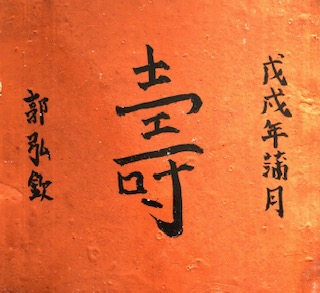 戊戌年蒲月
壽
郭弘欽